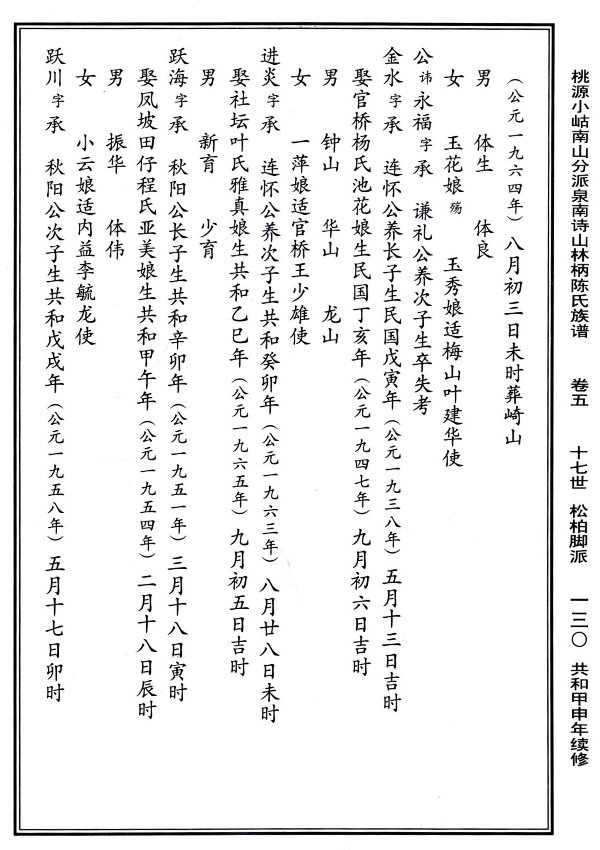 桃源小岵南山分派泉南诗山林柄陈氏族谱 卷五 十七世 松柏脚派 一三〇 共和甲申年续修
（公元一九六四年）八月初三日未时葬崎山
男 体生 体良
女 玉花娘殇 玉秀娘适梅山叶建华使
公讳永福字承 谦礼公养次子生卒失考
金水字承 连怀公养长子生民国戊寅年（公元一九三八年）五月十三日吉时
娶官桥杨氏池花娘生民国丁亥年（公元一九四七年）九月初六日吉时
男 钟山 华山 龙山
女 一萍娘适官桥王少雄使
进炎字承 连怀公养次子生共和癸卯年（公元一九六三年）八月廿八日未时
娶社坛叶氏雅真娘生共和乙巳年（公元一九六五年）九月初五日吉时
男 新育 少育
跃海字承 秋阳公长子生共和辛卯年（公元一九五一年）三月十八日寅时
娶凤坡田仔程氏亚美娘生共和甲午年（公元一九五四年）二月十八日辰时
男 振华 体伟
女 小云娘适内益李毓龙使
跃川字承 秋阳公次子生共和戊戌年（公元一九五八年）五月十七日卯时